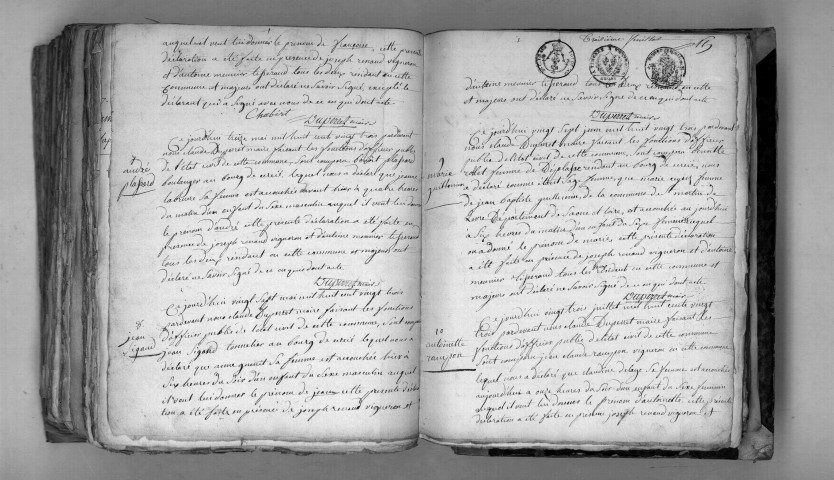 auquel il veut leu donner le prenom de françoise, cette presente
déclaration a été faite en presence de joseph renaud vigneron
et d'antoine meunier tisserand tous les deux residant en cette
commune et majeurs ont déclaré ne savoir signé, excepté le
declarant qui a signé avec nous de ce en quoi dont acte.
Chabert
Duperret maire
7
andré
plassard
Ce jourdhui treize mai mil huit cent vingt trois pardevant
nous claude Duperret maire faisant les fonctions d'officier public
de l'état civil de cette commune, sont comparu benoit plassard
boulanger au bourg de lequel nous a déclaré que jeanne
labruire sa femme est accouchée avant hier à quatre heures
du matin d'un enfant du sexe masculin auquel il veut leu donner
le prenom d'andré cette présente déclaration a été faite en
presence de joseph renaud vigneron et d'antoine meunier tisserand
tous les deux residant en cette commune et majeurs ont
déclaré ne savoir signé de ce en quoi dont acte.
Duperret maire
8.
jean
Sigaud
Ce jourdhui vingt sept mai mil huit cent vingt trois
pardevant nous claude Duperret maire faisant les fonctions
d'officier public de l'état civil de cette commune, sont comparu
jean Sigaud tonnelier au bourg de lequel nous a
déclaré que sa femme est accouchée hier à
six heures du soir d'un enfant du sexe masculin auquel
il veut leu donner le prenom de jean cette presente déclara
tion a été faite en présence de joseph renaud vigneron et
troisième feuillet
d'antoine meunier tisserand tous les deux residant en cette
et majeurs ont déclaré ne savoir signé de ce en quoi dont acte.
Duperret maire
9
marie
guillermin
Ce jourdhui vingt sept juin mil huit cent vingt trois pardevant
nous claude Duperret maire faisant les fonctions d'officier
public de l'état civil de cette commune, sont comparu
femme de residant au bourg de nous
a déclaré comme sage femme, que marie femme
de jean baptiste guillermin, de la commune de St martin de
département de Saone et loire, est accouchée aujourdhui
à six heures du matin d'un enfant du sexe feminin auquel
on a donné le prenom de marie, cette présente déclaration
a été faite en présence de joseph renaud vigneron et d'antoine
meunier tisserand tous les residant en cette commune et
majeurs ont déclaré ne savoir signé de ce en quoi dont acte.
Duperret maire
10
antoinette
rampon
Ce jourdhui vingt trois juillet mil huit cent vingt
trois pardevant nous claude Duperret maire faisant les
fonctions d'officier public de l'état civil de cette commune
sont comparu jean claude rampon vigneron en cette commune
lequel nous a déclaré que claudine sa femme est accouchée
aujourdhui à onze heures du soir d'un enfant du sexe feminin
auquel il veut leu donner le prenom d'antoinette cette présente
déclaration a été faite en présence joseph renaud vigneron, et